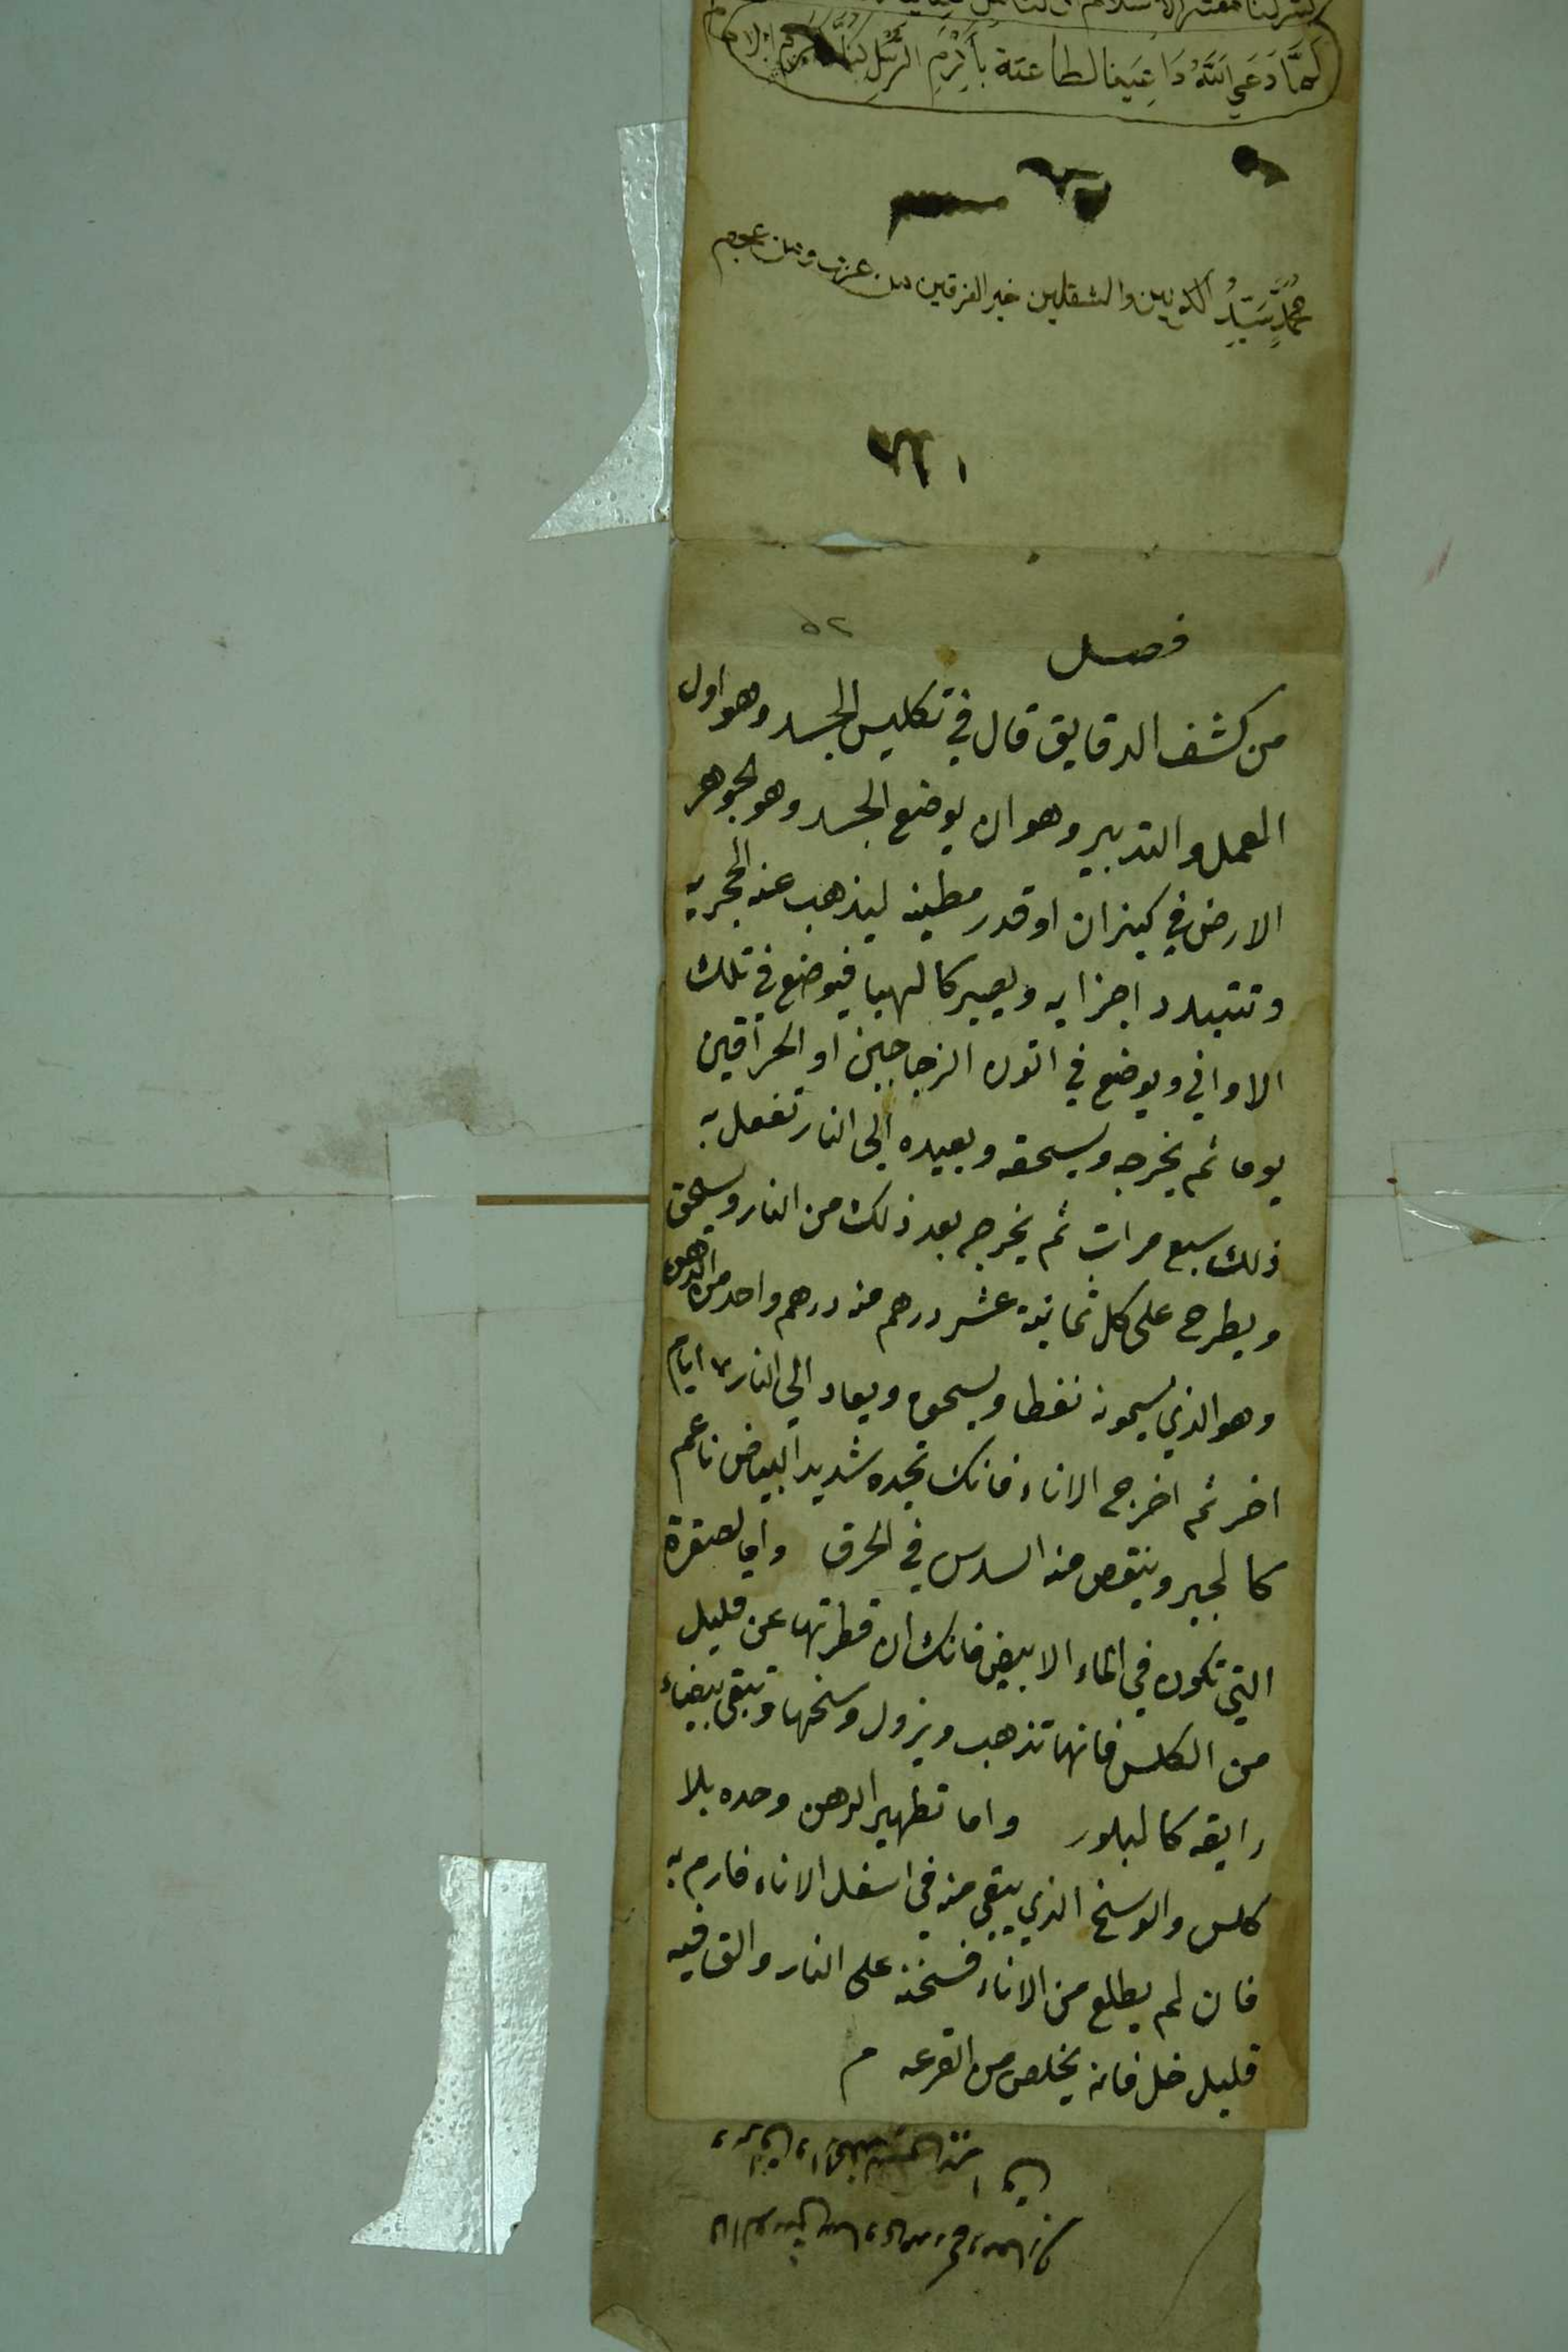 لما دعي الله داعينا لطاعته بأكرم الرسل كنا اكرم الامم
محمد سيد الكونين والثقلين خير الفرقين من عرب ومن عجم
٥٢
فصل
من كشف الدقايق قال في تكليس الجسد وهو اول
العمل والتدبير وهو ان يوضع الجسد وهو الجوهر
الارض في كيزان او قدر مطينه ليذهب عنه الحجريه
وتتبدد اجزايه ويصير كالهبا فيوضع في تلك
الاواني ويوضع في اتون الزجاجين او الحراقين
يوما ثم يخرجه ويسحقه ويعيده الى النار تفعل به
ذلك سبع مرات ثم يخرجه بعد ذلك من النار ويسحق
ويطرح على كل ثمانية عشر درهم منه درهم واحد من الدهن
وهو الذي يسمونه نفطا ويسحق ويعاد الي النار ٧ ايام
اخر ثم اخرج الاناء فانك تجده شديد البياض ناعم
كالجير وينقص منه السدس في الحرق واما الصفرة
التي تكون في الماء الابيض فانك ان قطرتها عن قليل
من الكلس فانها تذهب ويزول وسخها وتبقى بيضاء
رايقه كالبلور واما تطهير الدهن وحده بلا
كلس والوسخ الذي يبقي منه في اسفل الاناء فارم به
فان لم يطلع من الاناء فسخنه على النار والق فيه
قليل خل فانه يخلص من القرعه م